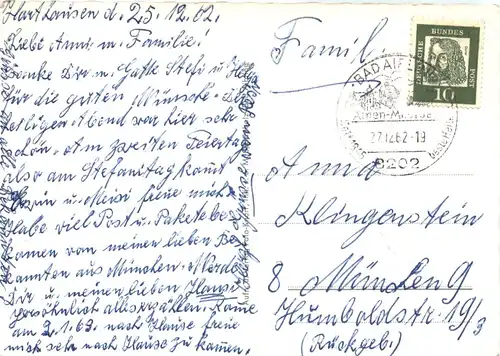 Harthausen d. 25.12.62.
Liebe Anni u. Familie!
Danke Dir u. Gatte Stefi u. Helga
für die guten Wünsche. Der
heilige Abend war hier sehr
schön. Am zweiten Feiertag
also am Stefanitag kommt
u. Meisi freue mich
habe viel Post u. Pakete be
komen von meinen lieben Be
kannten aus München. Werde
Dir u. meinen lieben Hansi
persöhnlich alles erzählen. Kome
am 2.1.63. nach Hause freue
mich sehr nach Hause zu komen.
Familie
Anna
Klingenstein
8 München 9
Humboldstr. 19/3
(Rückgeb.)
DEUTSCHE BUNDESPOST
10
BAD AIB
27.12.62-19
8202